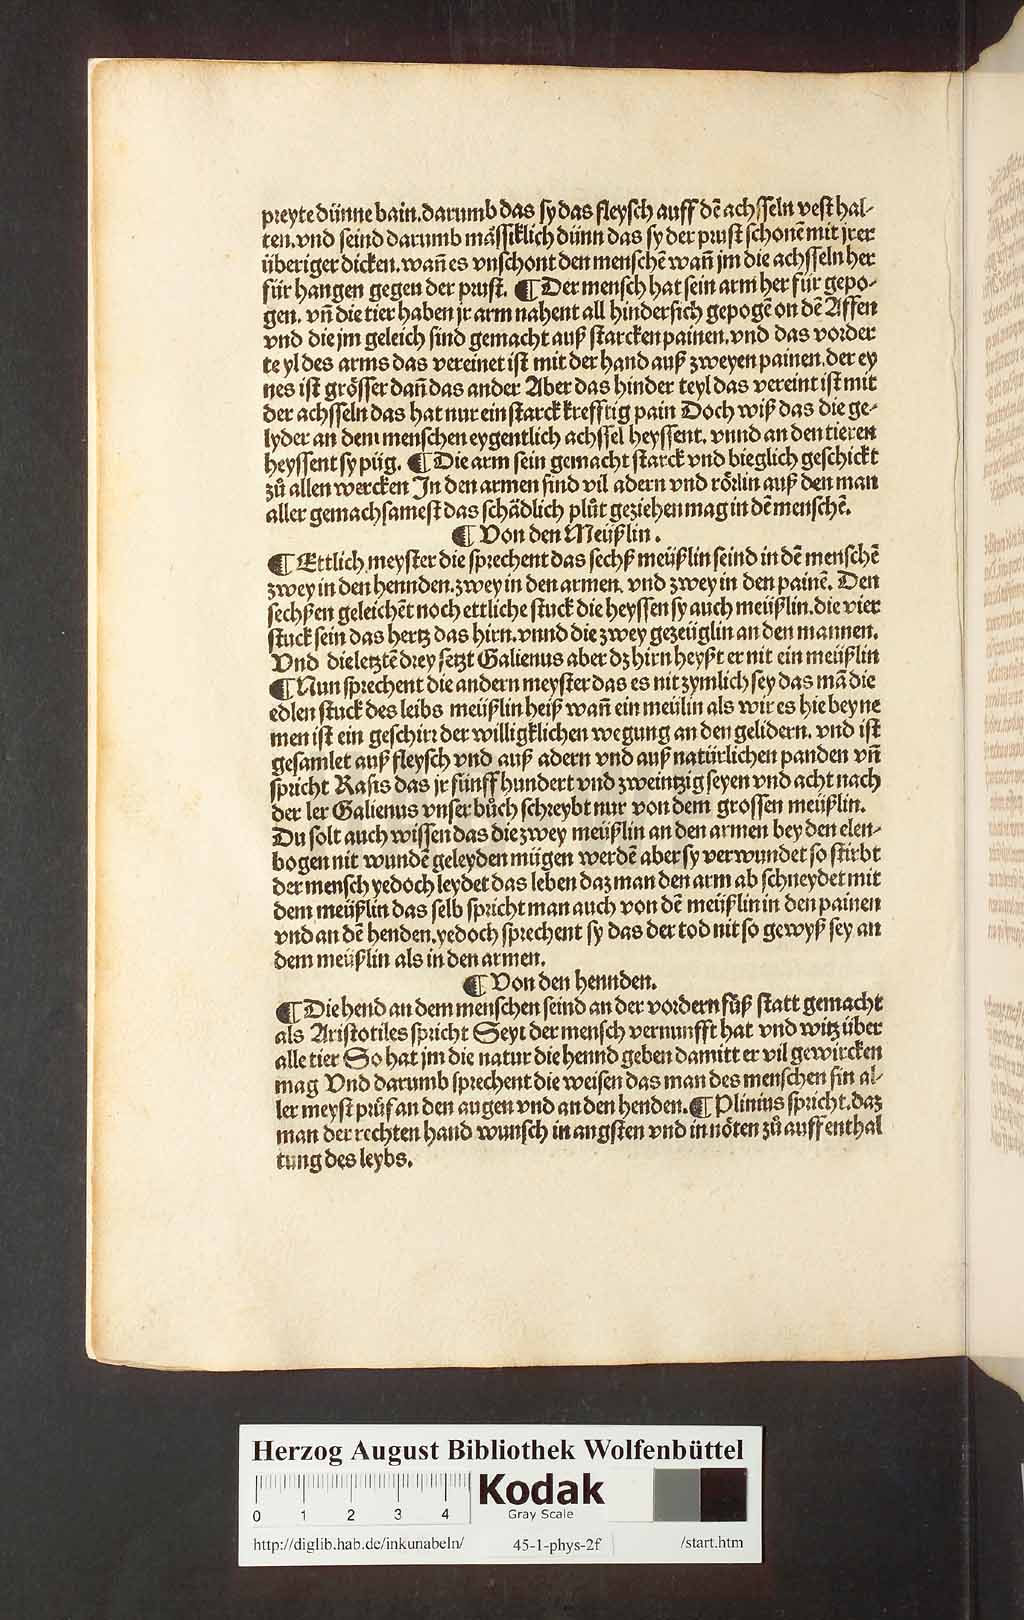 preyte dünne bain. darumb das sy das fleysch auff dẽ achsseln vest hal-
ten. vnd seind darumb mässiklich dünn das sy der prust schonẽ mit jrer
überiger dicken. wañ es vnschont den menschẽ wañ jm die achsseln her
für hangen gegen der prust. ¶ Der mensch hat sein arm her für gepo-
gen. vñ die tier haben jr arm nahent all hindersich gepogẽ on dẽ Affen
vnd die jm geleich sind gemacht auß starcken painen. vnd das vorder
teyl des arms das vereinet ist mit der hand auß zweyen painen. der ey
nes ist grösser dañ das ander Aber das hinder teyl das vereint ist mit
der achsseln das hat nur ein starck krefftig pain Doch wiß das die ge-
lyder an dem menschen eygentlich achssel heyssent. vnnd an den tieren
heyssent sy püg. ¶ Die arm sein gemacht starck vnd bieglich geschickt
zů allen wercken In den armen sind vil adern vnd rörlin auß den man
aller gemachsamest das schädlich plůt geziehen mag in dẽ menschẽ.
¶ Von den Meüßlin.
¶ Ettlich meyster die sprechent das sechß meüßlin seind in dẽ menschẽ
zwey in den hennden. zwey in den armen. vnd zwey in den painẽ. Den
sechßen geleichẽt noch ettliche stuck die heyssen sy auch meüßlin. die vier
stuck sein das hertz das hirn. vnnd die zwey gezeüglin an den mannen.
Vnd die letztẽ drey setzt Galienus aber dz hirn heyßt er nit ein meüßlin
¶ Nun sprechent die andern meyster das es nit zymlich sey das mã die
edlen stuck des leibs meüßlin heiß wañ ein meülin als wir es hie beyne
men ist ein geschirr der willigklichen wegung an den gelidern. vnd ist
gesamlet auß fleysch vnd auß adern vnd auß natürlichen panden vñ
spricht Rasis das jr fünffhundert vnd zweintzig seyen vnd acht nach
der ler Galienus vnser bůch schreybt nur von dem grossen meüßlin.
Du solt auch wissen das die zwey meüßlin an den armen bey den elen-
bogen nit wundẽ geleyden mügen werdẽ aber sy verwundet so stirbt
der mensch yedoch leydet das leben daz man den arm ab schneydet mit
dem meüßlin das selb spricht man auch von dẽ meüßlin in den painen
vnd an dẽ henden. yedoch sprechent sy das der tod nit so gewyß sey an
dem meüßlin als in den armen.
¶ Von den hennden.
¶ Die hend an dem menschen seind an der vordern füß statt gemacht
als Aristotiles spricht Seyt der mensch vernunfft hat vnd witz über
alle tier So hat jm die natur die hennd geben damitt er vil gewircken
mag Vnd darumb sprechent die weisen das man des menschen sin al-
ler meyst prüf an den augen vnd an den henden. ¶ Plinius spricht. daz
man der rechten hand wunsch in angsten vnd in nöten zů auffenthal
tung des leybs.
Herzog August Bibliothek Wolfenbüttel
0 1 2 3 4
Kodak
Gray Scale
http://diglib.hab.de/inkunabeln/ 45-1-phys-2f /start.htm